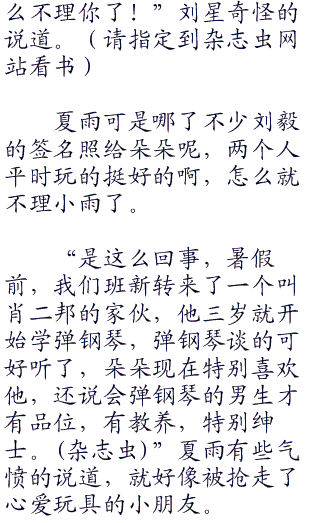 么不理你了！”刘星奇怪的
说道。（请指定到杂志虫网
站看书）
夏雨可是哪了不少刘毅
的签名照给朵朵呢，两个人
平时玩的挺好的啊，怎么就
不理小雨了。
“是这么回事，暑假
前，我们班新转来了一个叫
肖二邦的家伙，他三岁就开
始学弹钢琴，弹钢琴谈的可
好听了，朵朵现在特别喜欢
他，还说会弹钢琴的男生才
有品位，有教养，特别绅
士。(杂志虫)”夏雨有些气
愤的说道，就好像被抢走了
心爱玩具的小朋友。